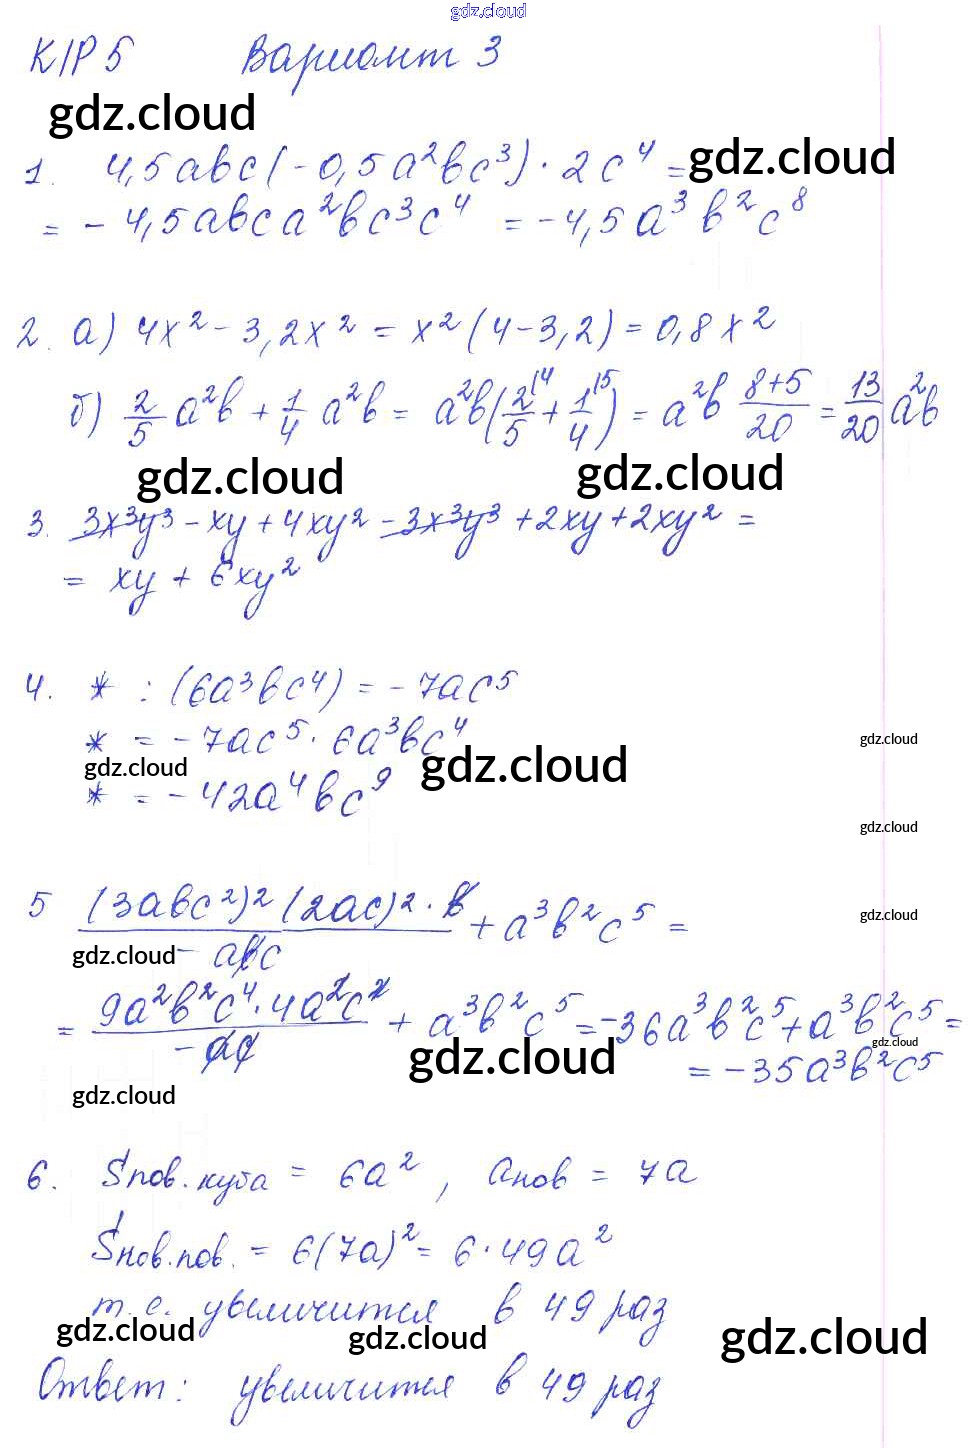 gdz.cloud
К/Р 5 Вариант 3
gdz.cloud
1. 4,5abc(-0,5a²bc³)·2c⁴ = gdz.cloud
= -4,5abca²bc³c⁴ = -4,5a³b²c⁸
2. а) 4x² - 3,2x² = x²(4-3,2) = 0,8x²
б) 2/5 a²b + 1/4 a²b = a²b(2/5 ⁽⁴ + 1/4 ⁽⁵) = a²b (8+5)/20 = 13/20 a²b
gdz.cloud gdz.cloud
3. 3x³y³ - xy + 4xy² - 3x³y³ + 2xy + 2xy² =
= xy + 6xy²
4. * : (6a³bc⁴) = -7ac⁵
* = -7ac⁵ · 6a³bc⁴ gdz.cloud
gdz.cloud gdz.cloud
* = -42a⁴bc⁹
gdz.cloud
5 (3abc²)²(2ac)²·b / -abc + a³b²c⁵ = gdz.cloud
gdz.cloud
= 9a²b²c⁴·4a²c² / -ac + a³b²c⁵ = -36a³b²c⁵ + a³b²c⁵ =
gdz.cloud gdz.cloud
= -35a³b²c⁵
gdz.cloud
6. Sпов.куба = 6a², aнов = 7a
Sнов.пов. = 6(7a)² = 6·49a²
т.е. увеличится в 49 раз
gdz.cloud gdz.cloud gdz.cloud
Ответ: увеличится в 49 раз